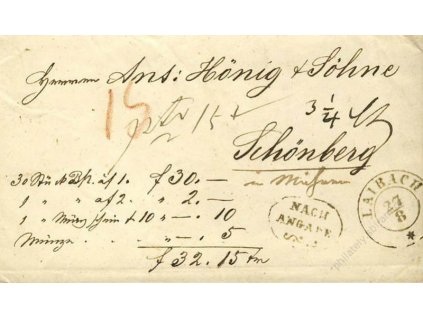 Herren Ant: Hönig & Söhne
15
3 1/4
Schönberg
in Mähren
30 Stück Bk. af 1. f 30.—
1 " " af 2. " 2.—
1 " Münzschein t 10 " —. 10
Münze " —. 5
f 32. 15
NACH
ANGABE
LAIBACH
27
8